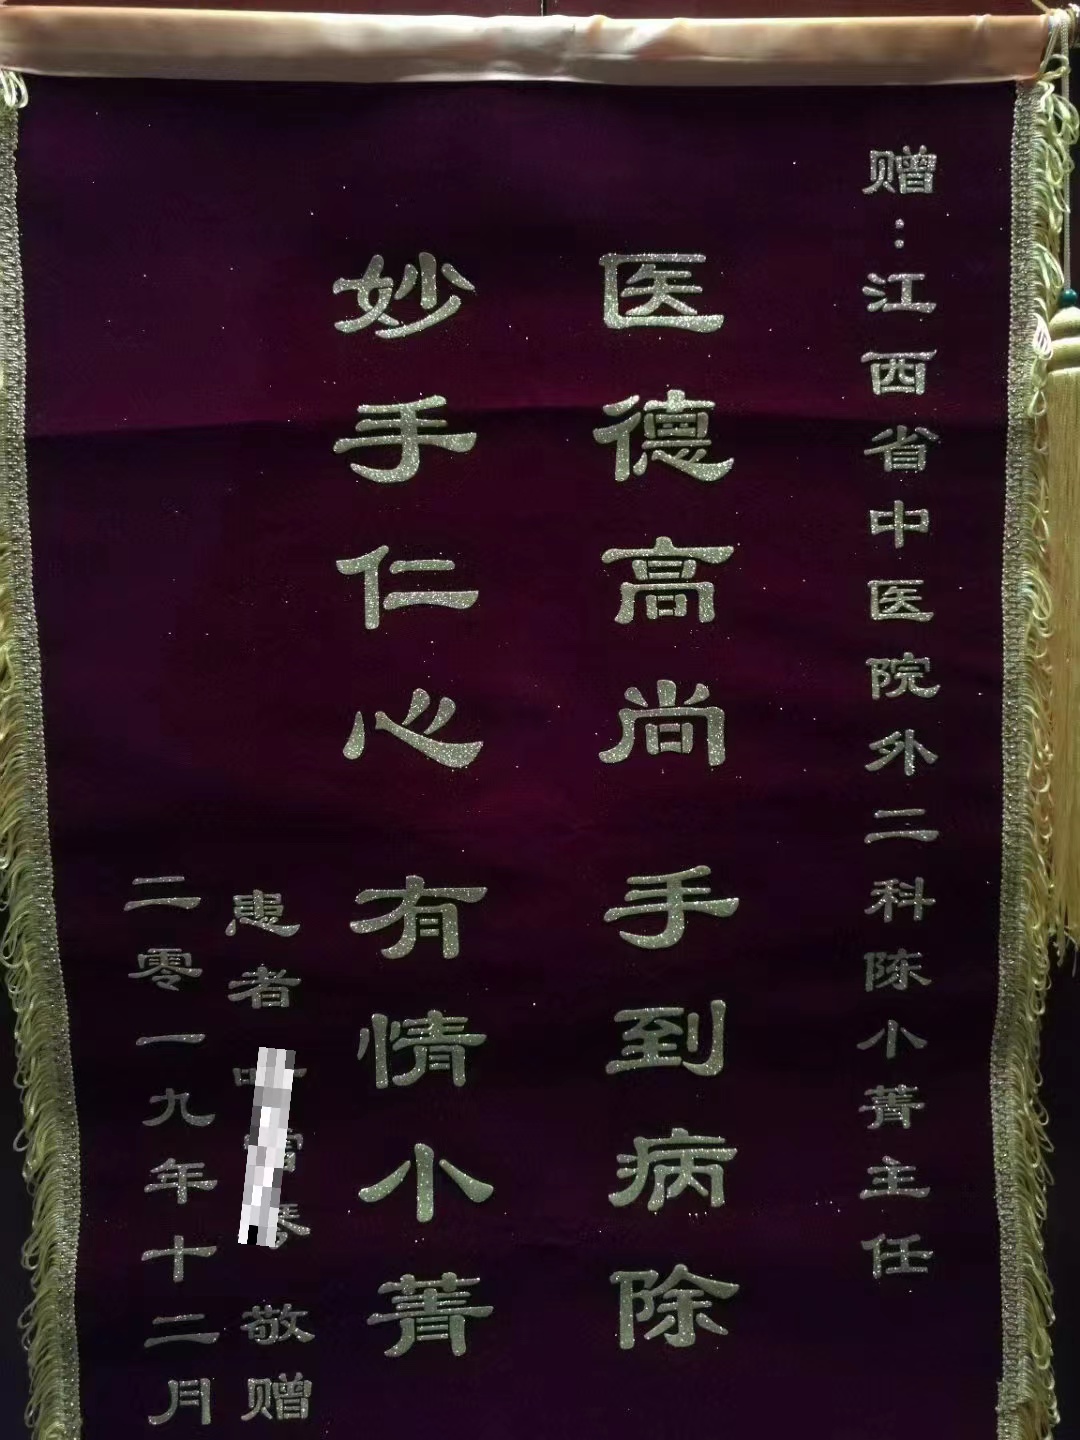 赠：江西省中医院外二科陈小菁主任
医德高尚 手到病除
妙手仁心 有情小菁
患者 敬赠
二零一九年十二月